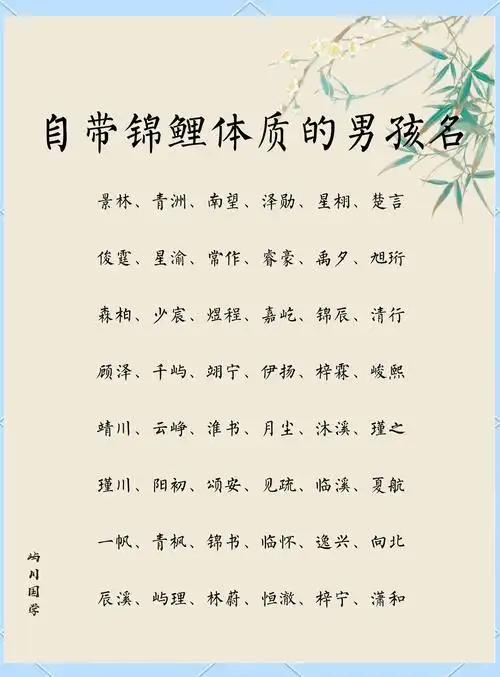 自带锦鲤体质的男孩名
景林、青洲、南望、泽勋、星栩、楚言
俊霆、星渝、常作、睿豪、禹夕、旭珩
森柏、少宸、煜程、嘉屹、锦辰、清行
顾泽、千屿、翊宁、伊扬、梓霖、峻熙
靖川、云峥、淮书、月尘、沐溪、瑾之
瑾川、阳初、颂安、见疏、临溪、夏航
一帆、青枫、锦书、临怀、逸兴、向北
辰溪、屿理、林蔚、恒澈、梓宁、潇和
屿川国学